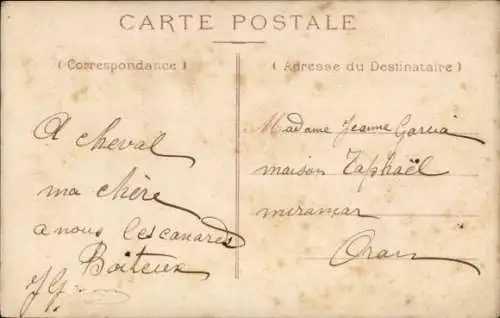 CARTE POSTALE
( Correspondance )
( Adresse du Destinataire )
A cheval
ma chère
a nous les canards
Boiteux
JG
Madame Jeanne Garcia
maison Taphaël
miramar
Oran